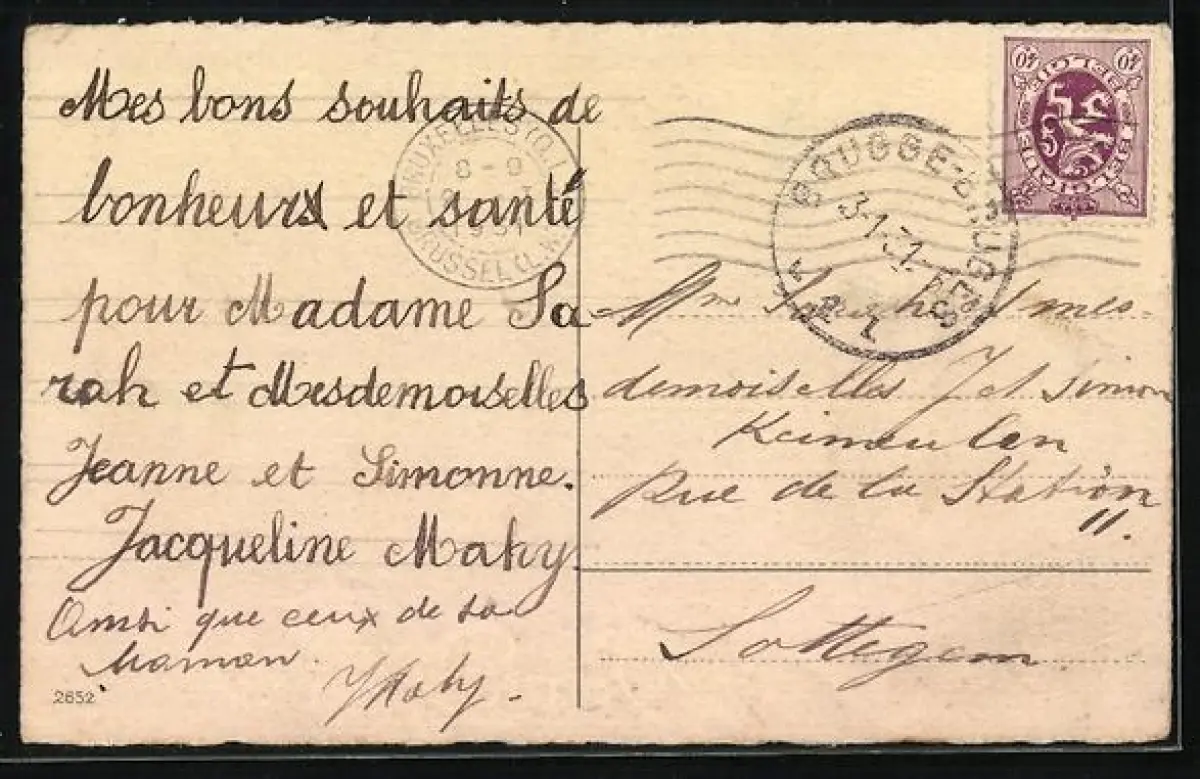 Mes bons souhaits de
bonheur et santé
pour Madame Sa-
rah et Mesdemoiselles
Jeanne et Simonne.
Jacqueline Mahy.
Ainsi que ceux de sa
Maman.
Mahy.
2652
BRUXELLES (Q.L.)
8-9
1931
BRUSSEL (L.W.)
BRUGGE-BRUGES
3-1-31
40 40
BELGIQUE BELGIË
Mme Sarah et mes-
demoiselles J et Simon
Rue de la Station
11.
Sottegem